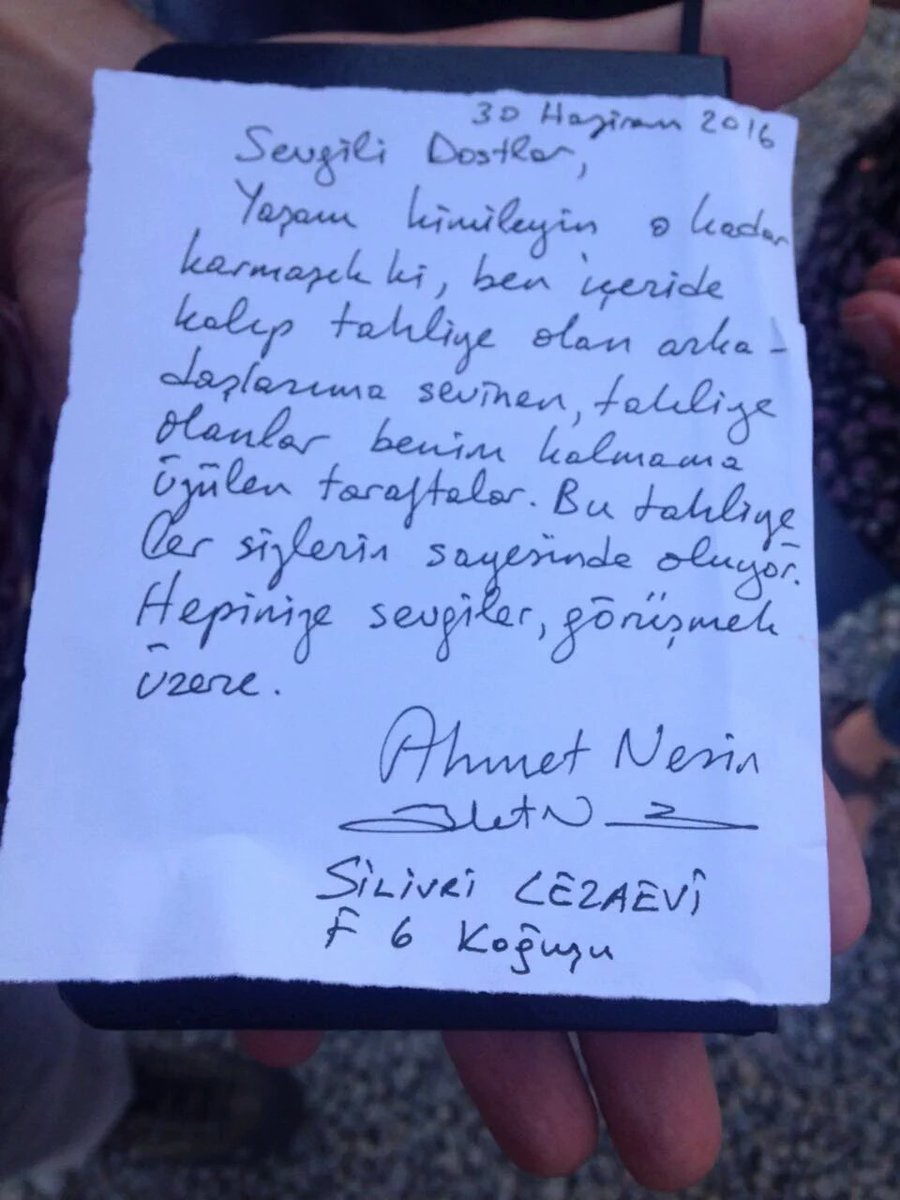 30 Haziran 2016
Sevgili Dostlar,
Yaşam kimileyin o kadar
karmaşık ki, ben içeride
kalıp tahliye olan arka-
daşlarıma sevinen, tahliye
olanlar benim kalmama
üzülen taraftalar. Bu tahliye
ler sizlerin sayesinde oluyor.
Hepinize sevgiler, görüşmek
üzere.
Ahmet Nesin
SİLİVRİ CEZAEVİ
F 6 Koğuşu